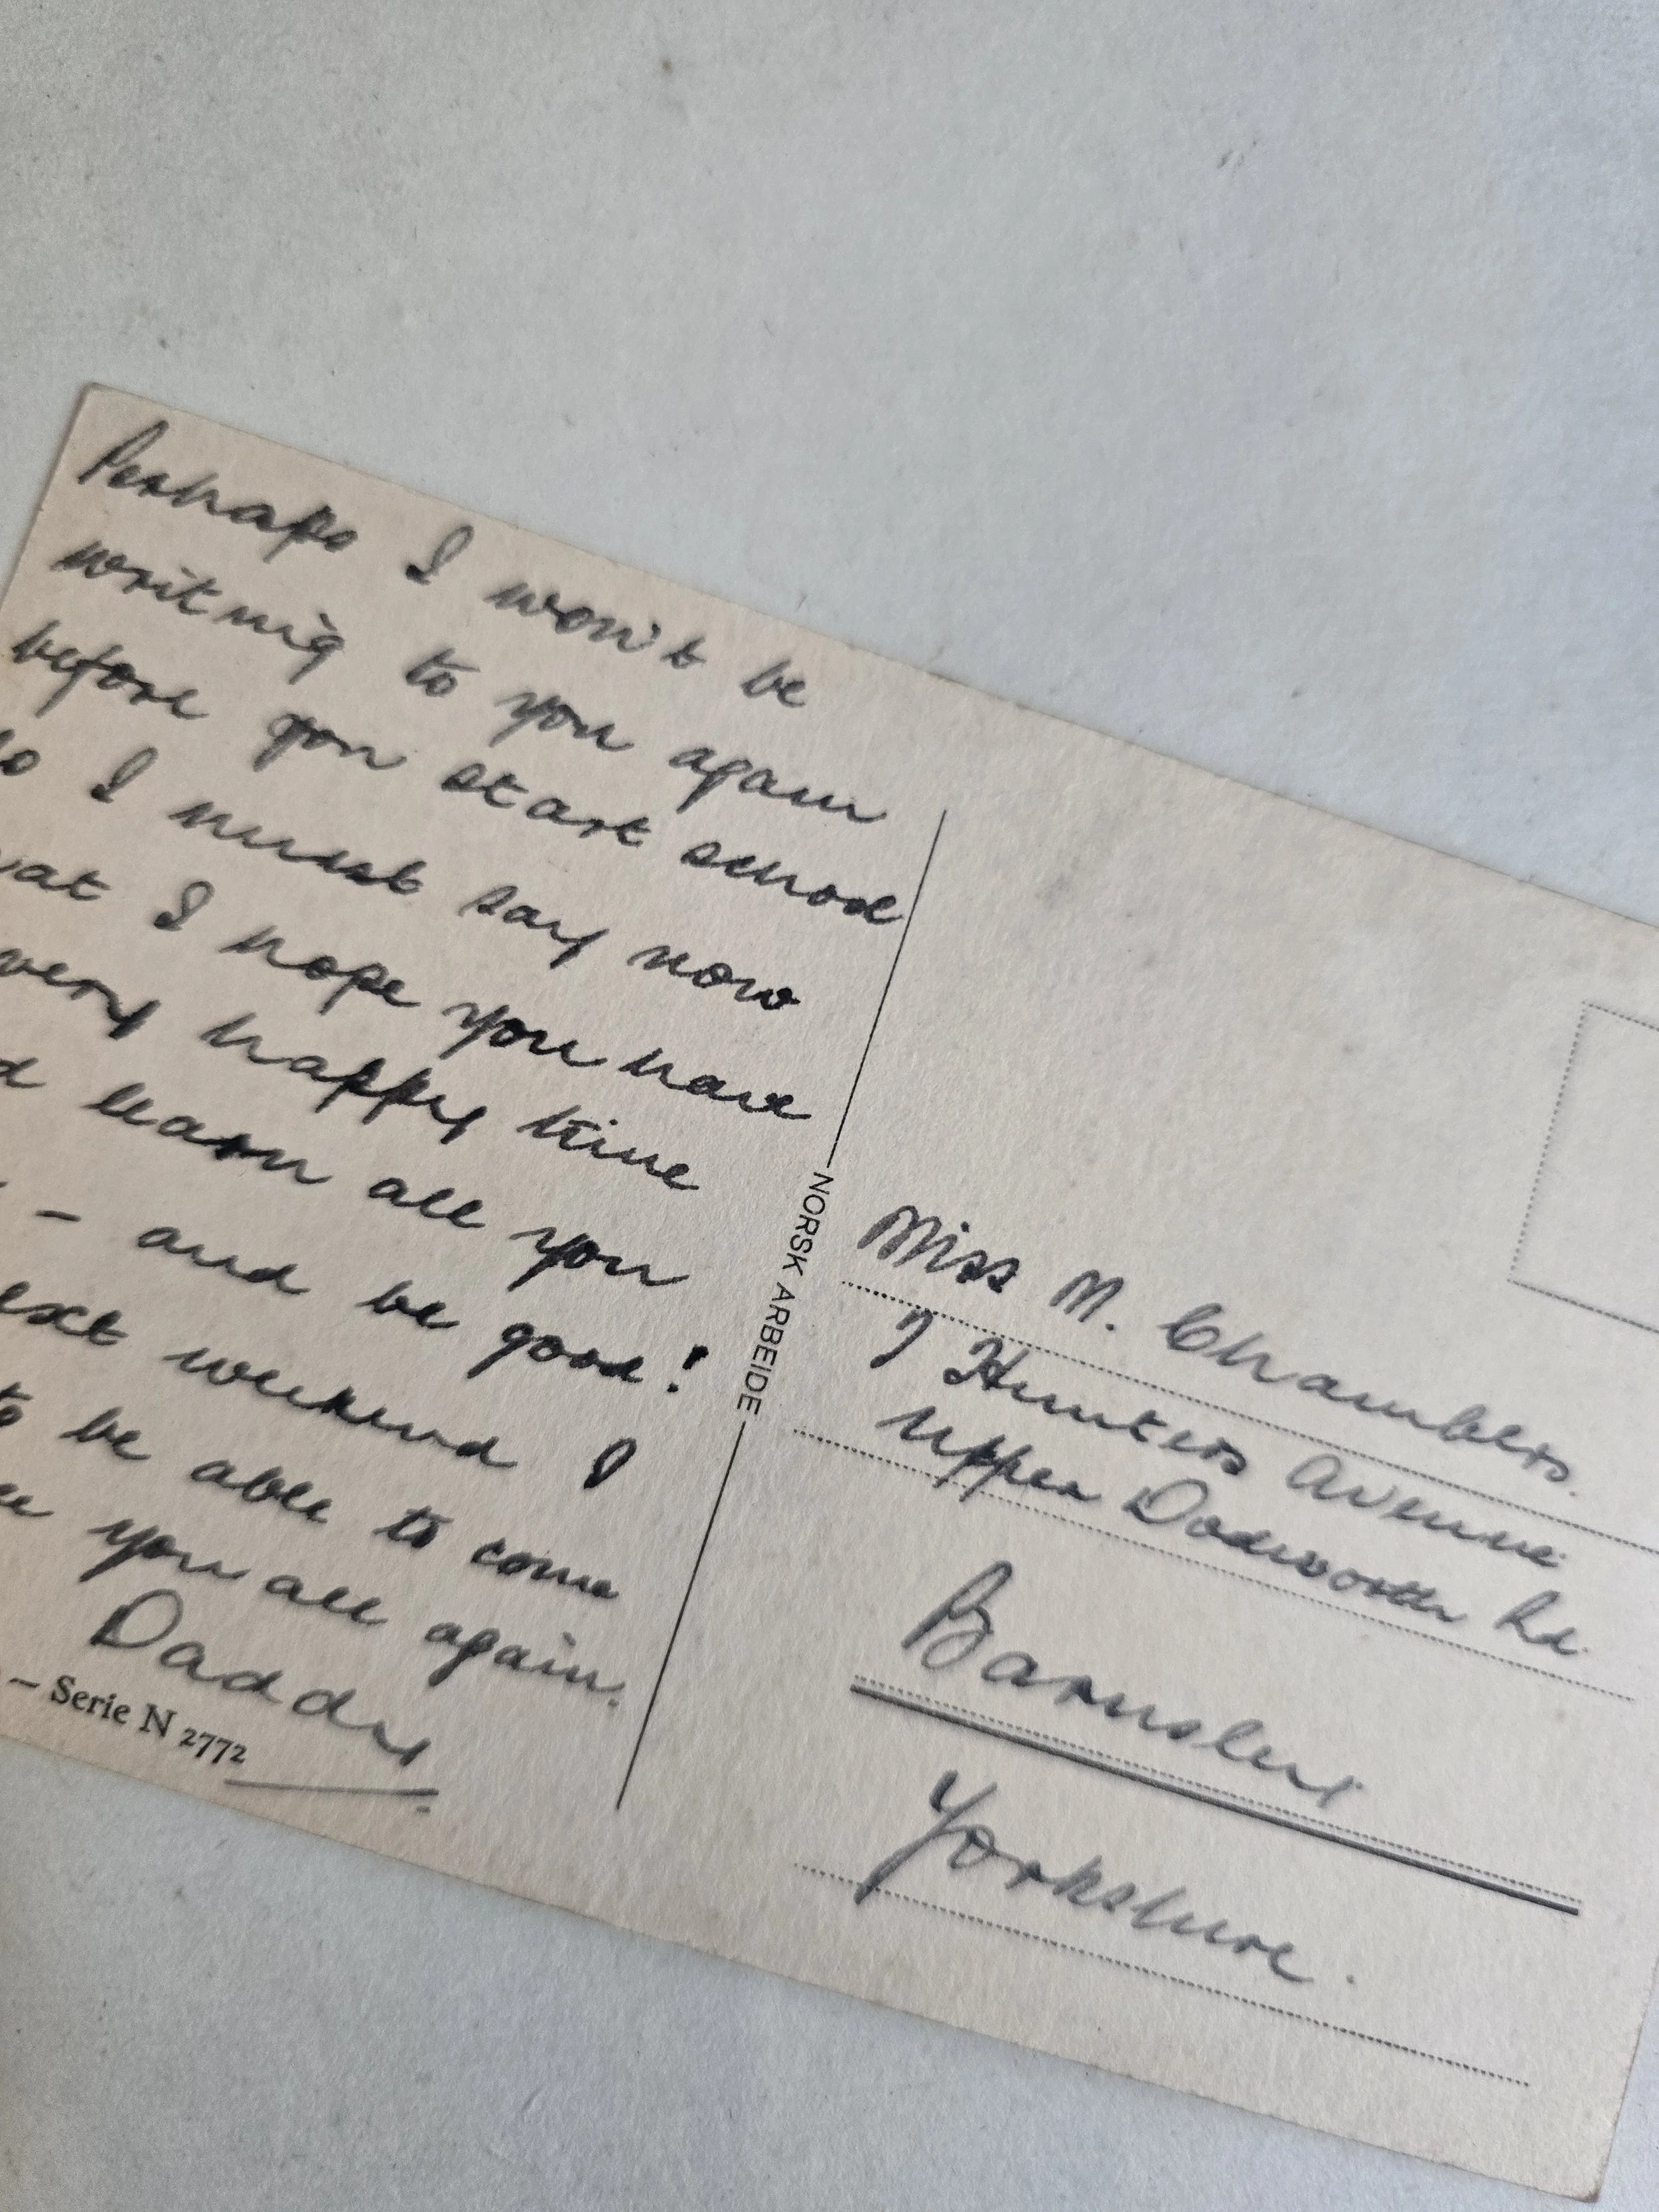 Perhaps I won't be
writing to you again
before you start school
So I must say now
I hope you have
very happy time
learn all you
- and be good!
weekend I
to be able to come
you all again.
Daddy
- Serie N 2772
NORSK ARBEIDE
Miss M. Chambers.
7 Hunters Avenue
Upper Dodworth Rd.
Barnsley
Yorkshire.